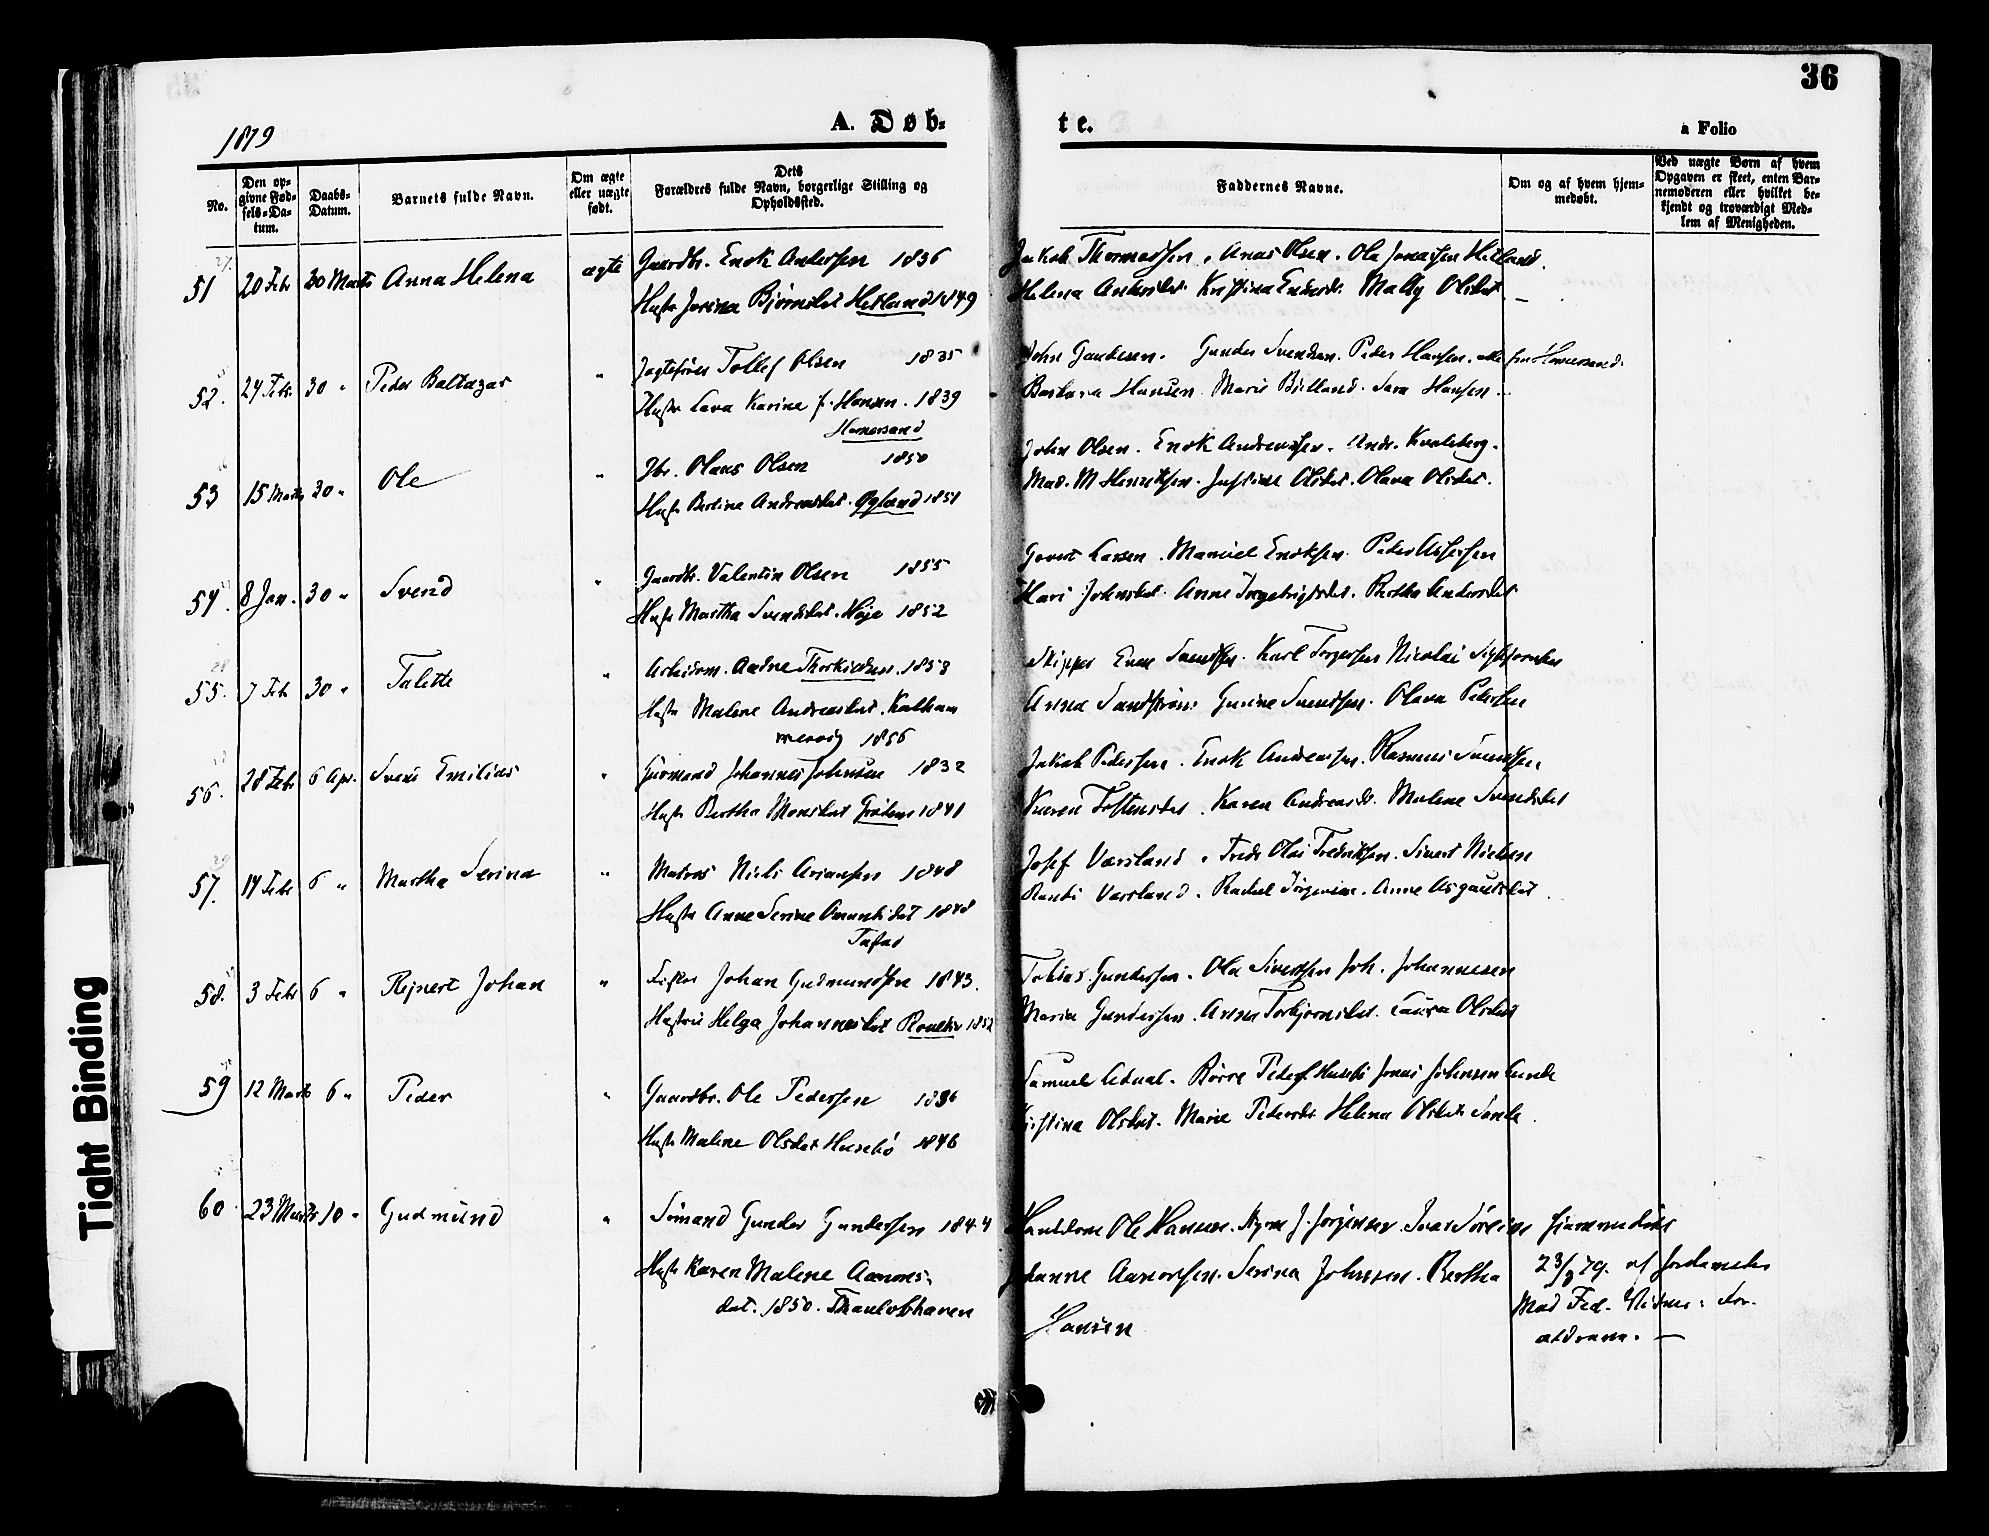 36
1879
A. Døb-
te.
a Folio
No.
Den op-
givne Fød-
sels-Da-
tum.
Daabs-
Datum.
Barnets fulde Navn.
Om ægte
eller uægte
født.
Dets
Forældres fulde Navn, borgerlige Stilling og
Opholdssted.
Faddernes Navne.
Om og af hvem hjem-
medøbt.
Ved uægte Børn af hvem
Opgaven er skeet, enten Bar-
nemoderen eller hvilket be-
kjendt og troværdigt Med-
lem af Menigheden.
51 20 Febr 30 Marts Anna Helena ægte Gaardbr. Enok Anderssen 1836
Hustr Jorina Bjørnsdat Hetland 1849
Jakob Thomassen. Anas Olsen. Ole Jonassen Hetland.
Helena Andersdat. Kristina Endresdr. Mally Olsdat
52. 24 Febr. 30 " Peder Baltazar " Jagtefører Tollef Olsen 1835
Hustr Lava Karine f. Hansen. 1839
Hamersand
John Gaudesen. Gunder Svendsen. Peder Hansen. alle fra Hamersand.
Barbara Hansen. Marie Birkland. Sara Hansen.
53 15 Marts 30 " Ole " Gbr. Olaus Olsen 1850
Hustr Bertine Andreasdat. Øgland 1851
John Olsen. Enok Andreassen. Andr. Kvaleberg.
Mad. M Henriksen. Justine Olsdat. Olava Olsdat.
54. 8 Jan. 30 " Svend " Gaardbr. Valentin Olsen 1855
Hustr Martha Svendsdat. Høje 1852
Govert Larsen. Manuel Enoksen. Peder Assersen
Kari Johnsdat. Anne Ingebrigtsdat. Berthe Andersdat
55. 7 Feb 30 " Talette " Arbeidsm. Aadne Thorkildsen. 1853
Hustr Malene Andreasdat. Kalham
mervig 1856
Skipper Even Svendsen. Karl Torgersen Nicolai
Anna Sandstrøm Gunine Svendsen. Olava Pedersen
56. 28 Febr 6 Apr. Svend Emilius " Gaarmand Johannes Johnsen 1832
Hustr Bertha Monsdat 1841
Jakob Pedersen. Enok Andreassen. Rasmus Svendsen.
Karen Toftensdat. Karen Andreasdr. Malene Svendsdat
57. 14 Febr 6 " Martha Serina " Matros Niels Ariansen 1848
Hustr Anne Serine Amundsdat 1848
Tastad
Josef Varsland. Fredr Olai Fredriksen. Sivert Nielsen
Randi Varsland. Rachel Jørgensen. Anne Asgautsdat.
58. 3 Febr 6 " Rejnert Johan " Fisker Johan Gudmundsen 1843.
Hustru Helga Johannesdat 1852
Tobias Gundersen. Ole Sivertsen Joh. Johannesen
Maria Gundersen. Anna Torbjørnsdat. Laura Olsdat
59 12 Marts 6 " Peder " Gaardbr. Ole Pedersen 1836
Hustr Malene Olsdat Husebø 1846
Samuel Børre Peders. Husebø Jonas Johnsen Lunde
Kristina Olsdat. Marie Pedersdr Helena Olsdat Sande
60 23 Marts 10 " Gudmund " Sømand Gunder Gundersen 1844
Hustr Karen Malene Aanons-
dat. 1850. Thaulobhaven
Ole Hansen. J. Jørgensen. Ivar Sørensen
Johanne Aanonsen. Serina Johnsen. Bertha
Hansen
Hjemmedøbt
23/3 79. af Jordemoder
Mad Fed.